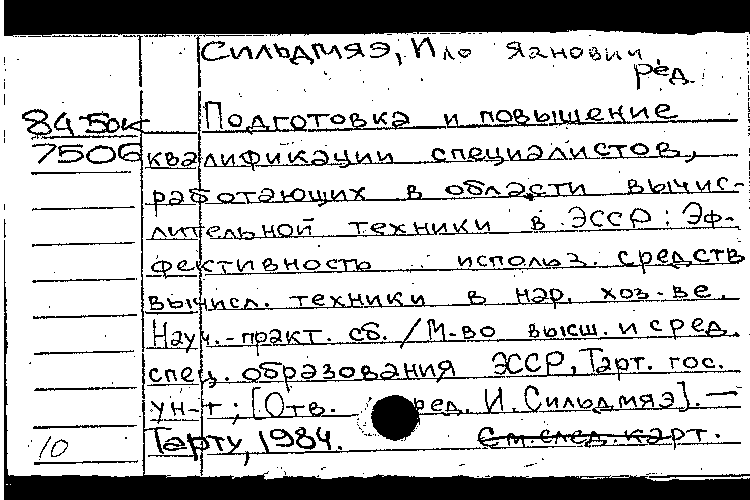 Сильдмяэ, Ило Яанович
ред.
84 Бок Подготовка и повышение
7506 квалификации специалистов,
работающих в области вычис-
лительной техники в ЭССР: Эф-
фективность использ. средств
вычисл. техники в нар. хоз-ве.
Науч.-практ. сб. / М-во высш. и сред.
спец. образования ЭССР, Тарт. гос.
ун-т; [Отв. ред. И. Сильдмяэ]. —
10 Тарту, 1984. См. след. карт.